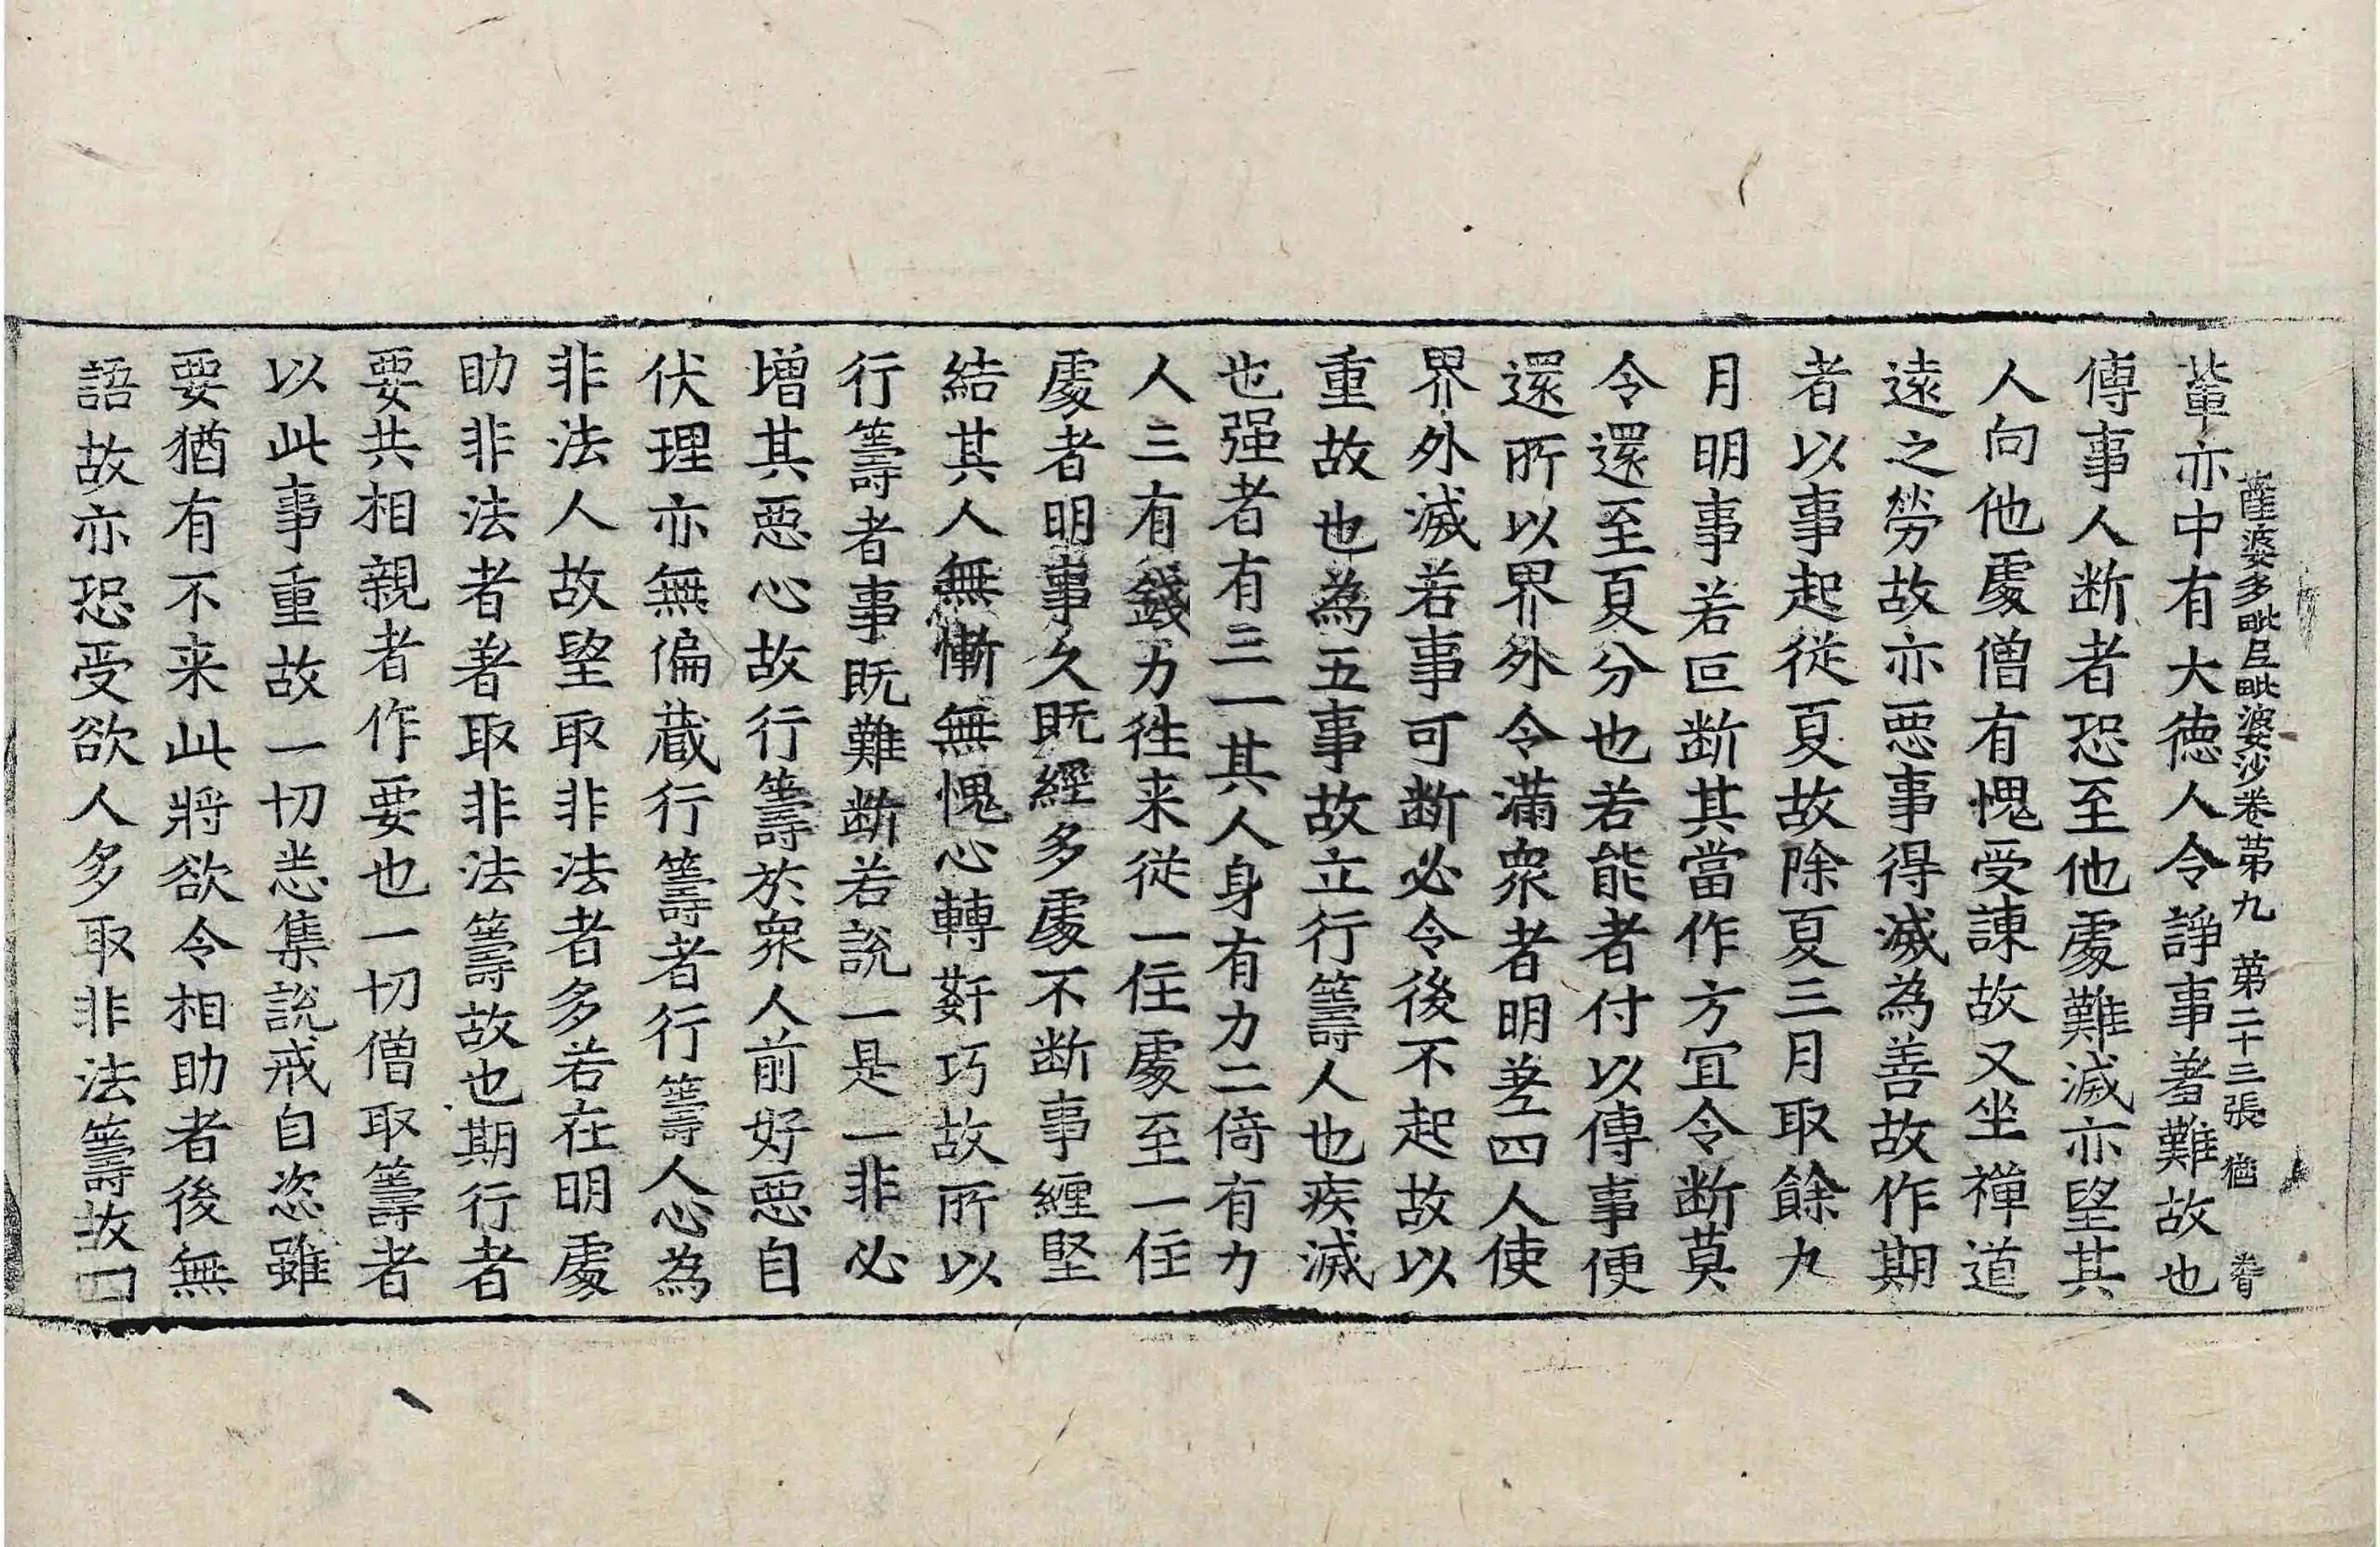 薩婆多毗尼毗婆沙卷第九　第二十三張　猶　眷
軰亦中有大徳人令諍事著難故也
傳事人断者恐至他處難滅亦望其
人向他處僧有愧受諫故又坐禪道
逺之勞故亦惡事得滅為善故作期
者以事起從夏故除夏三月取餘九
月明事若叵断其當作方冝令断莫
令還至夏分也若能者付以傳事便
還所以界外令滿衆者明差四人使
界外滅若事可断必令後不起故以
重故也為五事故立行籌人也疾滅
也强者有三一其人身有力二倚有力
人三有錢力徃来從一住處至一住
處者明事久既經多處不断事纒堅
結其人無慚無愧心轉姧巧故所以
行籌者事既難断若說一是一非必
增其惡心故行籌於衆人前好惡自
伏理亦無偏蔵行籌者行籌人心為
非法人故望取非法者多若在明處
助非法者著取非法籌故也期行者
要共相親者作要也一切僧取籌者
以此事重故一切恙集說戒自恣雖
要猶有不来此將欲令相助者後無
語故亦恐受欲人多取非法籌故口